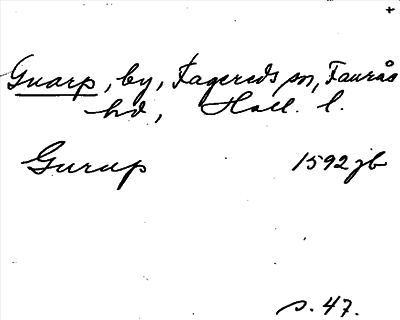 +
Guarp, by, Fagereds sn, Faurås
hd, Hall. l.
Gurup 1592 jb
s. 47.